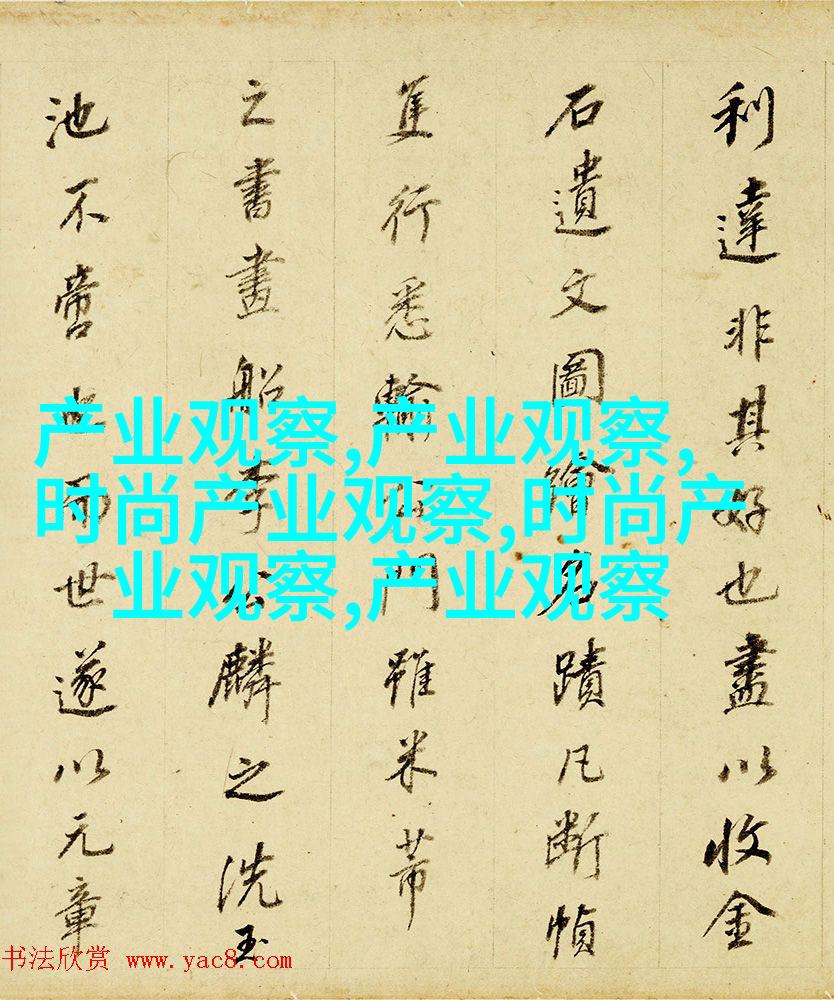 利達非其好也盡以收金
石遺文圖繪名蹟凡斷幀
隻行悉輸門雖米芾
之書畫船李公麟之洗玉
池不啻也而世遂以元章
产业观察,产业观察,
时尚产业观察,时尚产
业观察,产业观察
书法欣赏 www.yac8.com